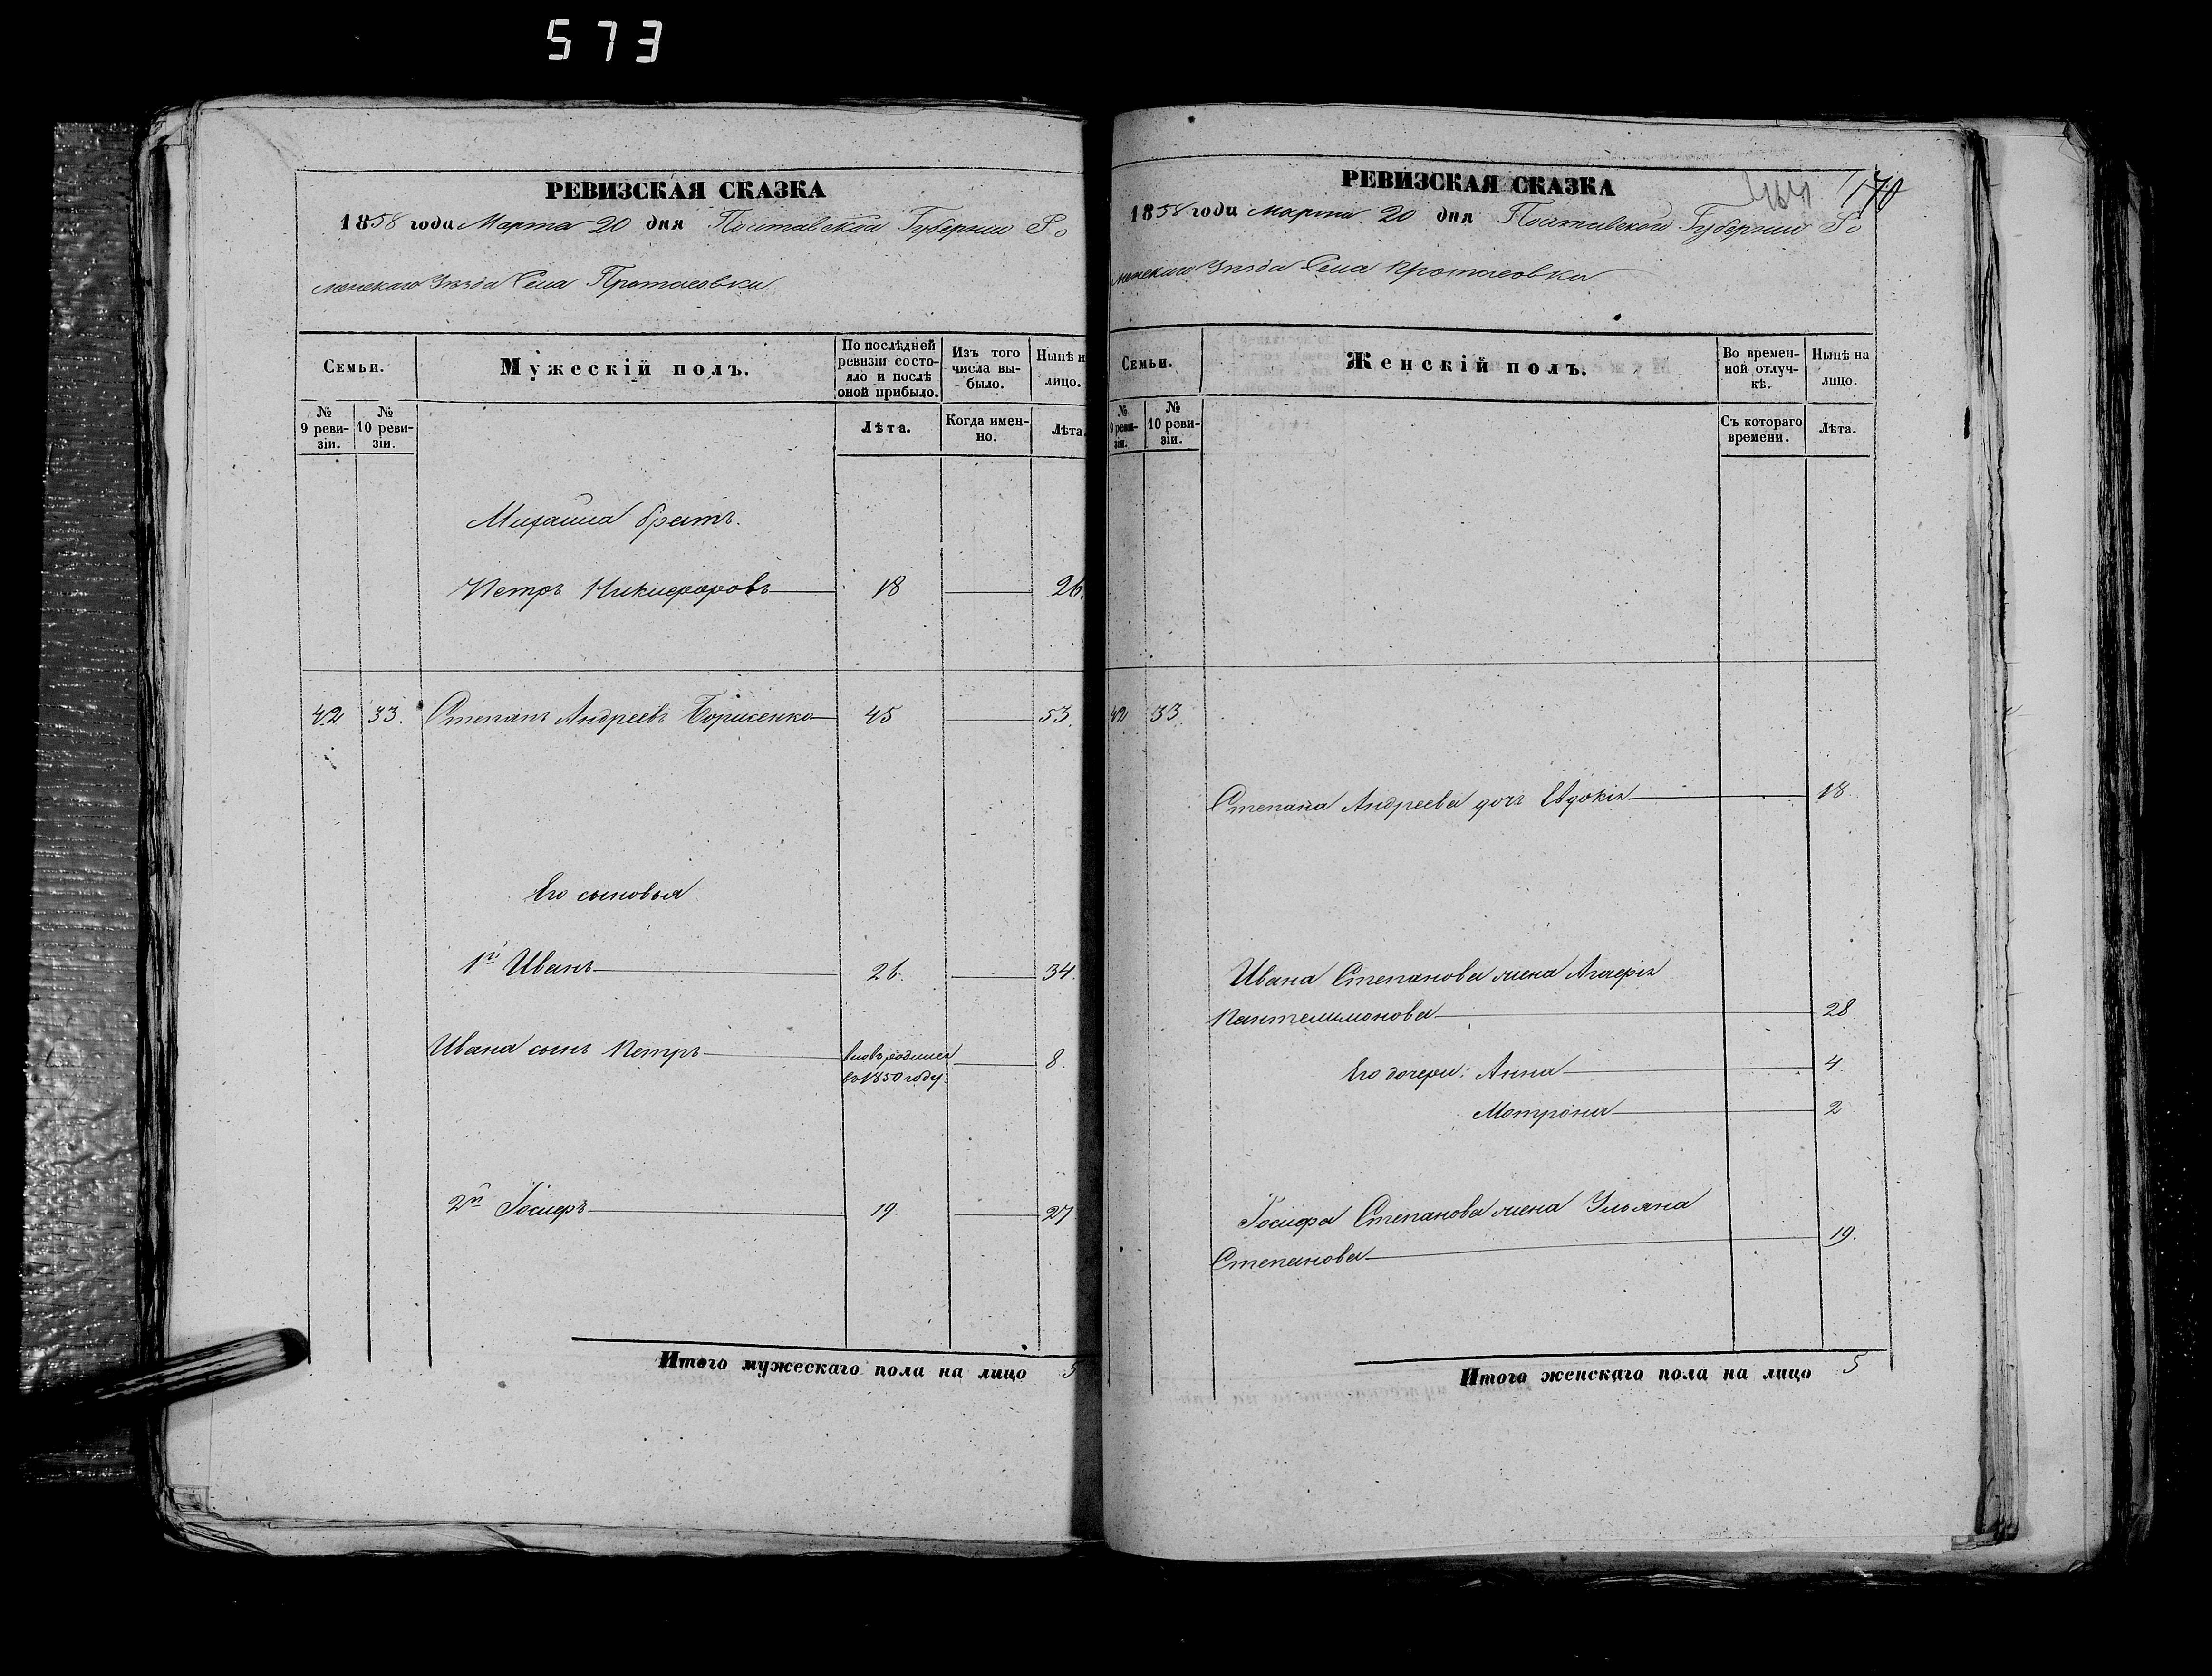 573
РЕВИЗСКАЯ СКАЗКА
1858 года Марта 20 дня Полтавской Губернии Ро
менскаго Уѣзда Села Протасовки
Семьи.
Мужескій полъ.
По послѣдней
ревизіи состо-
яло и послѣ
оной прибыло.
Изъ того
числа вы-
было.
Нынѣ н
лицо.
№
9 реви-
зіи.
№
10 реви-
зіи.
Лѣта.
Когда имен-
но.
Лѣта.
Михаила братъ.
Петръ Никифоровъ 18 26.
42 33. Степанъ Андреевъ Борисенко 45 53.
Его сыновья
1й Иванъ 26. 34.
Ивана сынъ Петръ вновь родился 8.
въ 1850 году.
2й Іосифъ 19. 27
Итого мужескаго пола на лицо 5
РЕВИЗСКАЯ СКАЗКА
170
1858 года Марта 20 дня Полтавской Губернии Ро
менскаго Уѣзда Села Протасовки
Семьи.
Женскій полъ.
Во времен-
ной отлуч-
кѣ.
Нынѣ на
лицо.
№
9 реви-
зіи.
№
10 реви-
зіи.
Съ котораго
времени.
Лѣта.
42 33
Степана Андреева дочь Евдокія 18.
Ивана Степанова жена
Пантелимонова 28
Его дочери: Анна 4.
Мотрона 2
Іосифа Степанова жена Ульяна
Степанова 19.
Итого женскаго пола на лицо 5